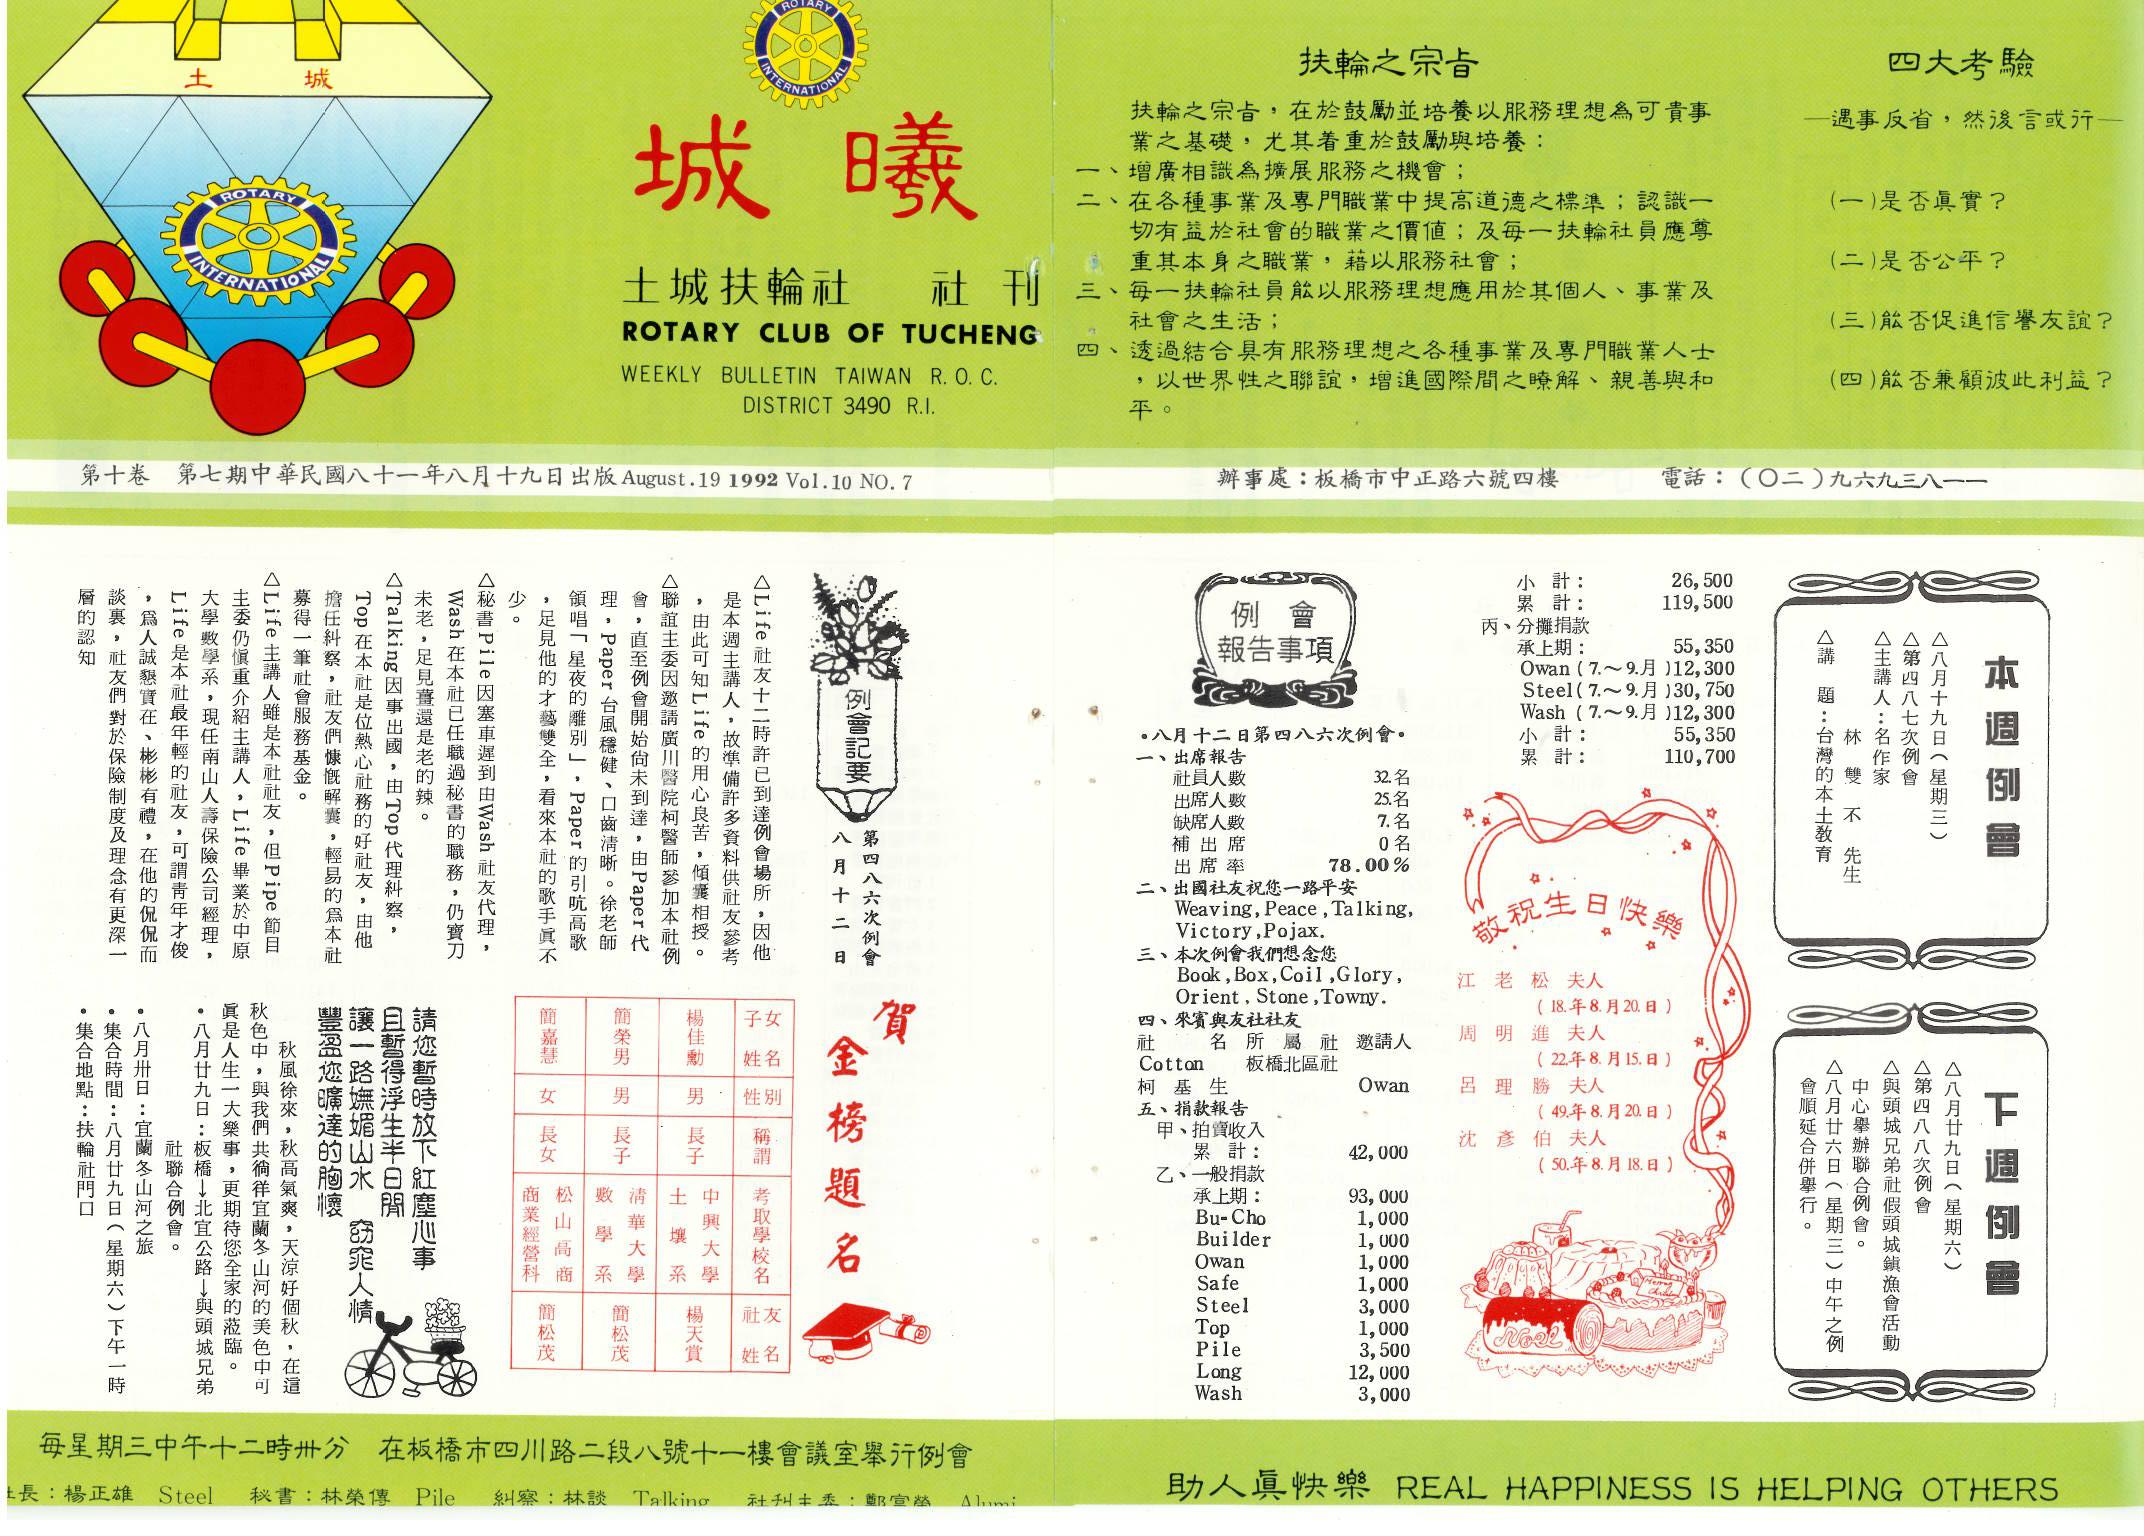 土 城
ROTARY
INTERNATIONAL
ROTARY
INTERNATIONAL
城 曦
土城扶輪社 社 刊
ROTARY CLUB OF TUCHENG
WEEKLY BULLETIN TAIWAN R. O. C.
DISTRICT 3490 R.I.
扶輪之宗旨
扶輪之宗旨,在於鼓勵並培養以服務理想為可貴事
業之基礎,尤其着重於鼓勵與培養:
一、增廣相識為擴展服務之機會;
二、在各種事業及專門職業中提高道德之標準;認識一
切有益於社會的職業之價值;及每一扶輪社員應尊
重其本身之職業,藉以服務社會;
三、每一扶輪社員能以服務理想應用於其個人、事業及
社會之生活;
四、透過結合具有服務理想之各種事業及專門職業人士
,以世界性之聯誼,增進國際間之瞭解、親善與和
平。
四大考驗
—遇事反省,然後言或行—
(一)是否眞實?
(二)是否公平?
(三)能否促進信譽友誼?
(四)能否兼顧彼此利益?
第十卷 第七期中華民國八十一年八月十九日出版 August.19 1992 Vol.10 NO.7
辦事處:板橋市中正路六號四樓 電話:(〇二)九六九三八一一
本週例會
△八月十九日(星期三)
△第四八七次例會
△主講人:名作家
林 雙 不 先生
△講 題:台灣的本土教育
下週例會
△八月廿九日(星期六)
△第四八八次例會
△與頭城兄弟社假頭城鎮漁會活動
中心舉辦聯合例會。
△八月廿六日(星期三)中午之例
會順延合併舉行。
例 會
報告事項
•八月十二日第四八六次例會•
一、出席報告
社員人數 32.名
出席人數 25.名
缺席人數 7.名
補 出 席 0名
出 席 率 78.00%
二、出國社友祝您一路平安
Weaving,Peace,Talking,
Victory,Pojax.
三、本次例會我們想念您
Book,Box,Coil,Glory,
Orient,Stone,Towny.
四、來賓與友社社友
社 名 所 屬 社 邀請人
Cotton 板橋北區社
柯 基 生 Owan
五、捐款報告
甲、拍賣收入
累 計: 42,000
乙、一般捐款
承上期: 93,000
Bu-Cho 1,000
Builder 1,000
Owan 1,000
Safe 1,000
Steel 3,000
Top 1,000
Pile 3,500
Long 12,000
Wash 3,000
小 計: 26,500
累 計: 119,500
丙、分攤捐款
承上期: 55,350
Owan(7.~9.月)12,300
Steel(7.~9.月)30,750
Wash(7.~9.月)12,300
小 計: 55,350
累 計: 110,700
敬祝生日快樂
江 老 松 夫人
(18.年8月20.日)
周 明 進 夫人
(22.年8月15.日)
呂 理 勝 夫人
(49.年8月20.日)
沈 彥 伯 夫人
(50.年8月18.日)
Noel
例會記要
第四八六次例會
八月十二日
△Life社友十二時許已到達例會場所,因他
是本週主講人,故準備許多資料供社友參考
,由此可知Life的用心良苦,傾囊相授。
△聯誼主委因邀請廣川醫院柯醫師參加本社例
會,直至例會開始尙未到達,由Paper代
理,Paper台風穩健、口齒淸晰。徐老師
領唱「星夜的離別」,Paper的引吭高歌
,足見他的才藝雙全,看來本社的歌手眞不
少。
△秘書Pile因塞車遲到由Wash社友代理,
Wash在本社已任職過秘書的職務,仍寶刀
未老,足見薑還是老的辣。
△Talking因事出國,由Top代理糾察,
Top在本社是位熱心社務的好社友,由他
擔任糾察,社友們慷慨解囊,輕易的爲本社
募得一筆社會服務基金。
△Life主講人雖是本社社友,但Pipe節目
主委仍愼重介紹主講人,Life畢業於中原
大學數學系,現任南山人壽保險公司經理,
Life是本社最年輕的社友,可謂靑年才俊
,爲人誠懇實在、彬彬有禮,在他的侃侃而
談裏,社友們對於保險制度及理念有更深一
層的認知
賀
金榜題名
子女姓名 性別 稱謂 考取學校名 社友姓名
楊佳勳 男 長子 中興大學土壤系 楊天賞
簡榮男 男 長子 淸華大學數學系 簡松茂
簡嘉慧 女 長女 松山高商商業經營科 簡松茂
請您暫時放下紅塵心事
且暫得浮生半日閒
讓一路嫵媚山水 窈窕人情
豐盈您曠達的胸懷
秋風徐來,秋高氣爽,天涼好個秋,在這
秋色中,與我們共徜徉宜蘭冬山河的美色中可
眞是人生一大樂事,更期待您全家的蒞臨。
•八月廿九日:板橋→北宜公路→與頭城兄弟
社聯合例會。
•八月卅日:宜蘭冬山河之旅
•集合時間:八月廿九日(星期六)下午一時
•集合地點:扶輪社門口
每星期三中午十二時卅分 在板橋市四川路二段八號十一樓會議室舉行例會
社長:楊正雄 Steel 秘書:林榮傳 Pile 糾察:林談 Talking 社刊主委:鄭富榮 Alumi
助人眞快樂 REAL HAPPINESS IS HELPING OTHERS